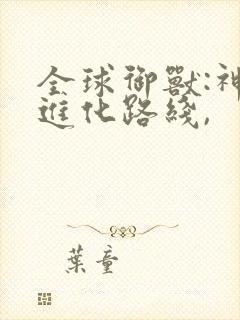 全球御獸:神
進化路綫,
葉童